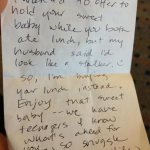 I wanted to offer to
hold your sweet
baby while you both
ate lunch, but my
husband said I'd
look like a stalker,
so, I'm buying
your lunch instead.
Enjoy that sweet
baby -- we have
teenagers & know
what's ahead for
you so snuggle